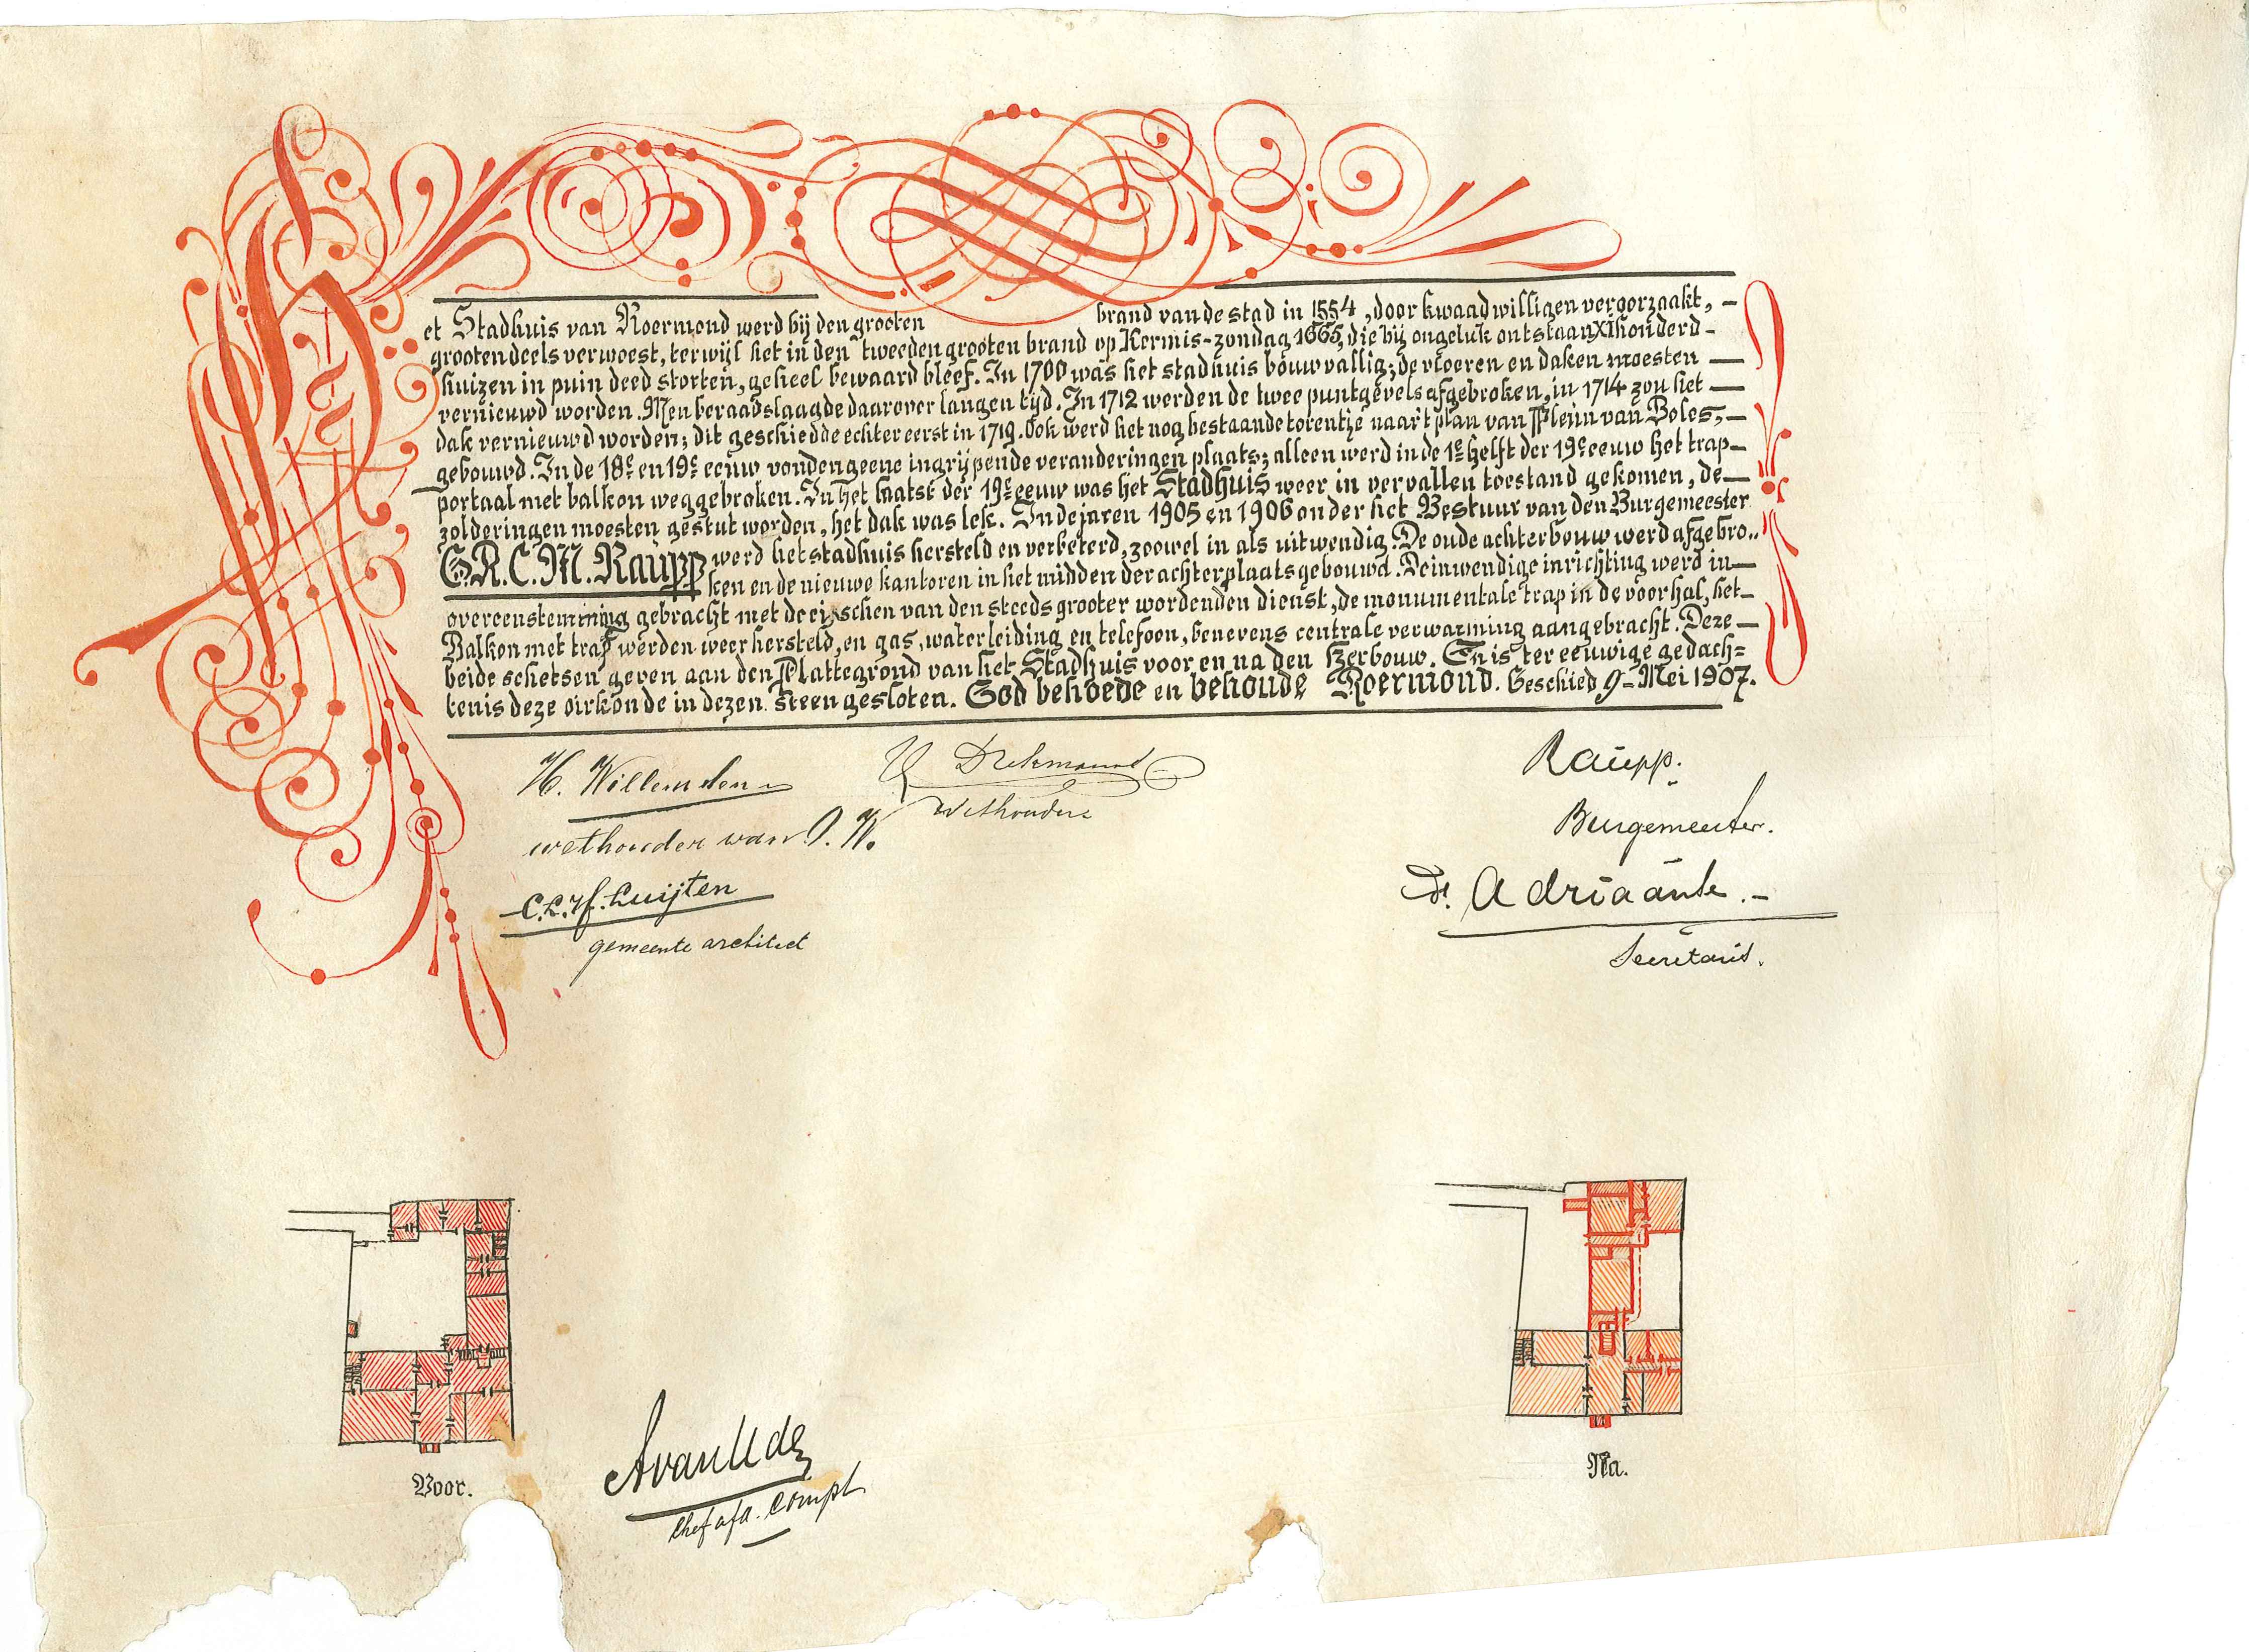 Het Stadhuis van Roermond werd bij den grooten brand van de stad in 1554, door kwaadwilligen veroorzaakt, —
grootendeels verwoest, terwijl het in den tweeden grooten brand op Kermis-zondag 1665, die bij ongeluk ontstaan XI honderd-
huizen in puin deed storten, geheel bewaard bleef. In 1700 was het stadhuis bouwvallig; de vloeren en daken moesten —
vernieuwd worden. Men beraadslaagde daarover langen tijd. In 1712 werden de twee puntgevels afgebroken, in 1714 zou het —
dak vernieuwd worden; dit geschiedde echter eerst in 1719. Ook werd het nog bestaande torentje naar 't plan van Pleun van Boles, —
gebouwd. In de 18e en 19e eeuw vonden geene ingrijpende veranderingen plaats; alleen werd in de 1e helft der 19e eeuw het trap-
portaal met balkon weggebroken. In het laatst der 19e eeuw was het Stadhuis weer in vervallen toestand gekomen, de —
zolderingen moesten gestut worden, het dak was lek. In de jaren 1905 en 1906 onder het Bestuur van den Burgemeester
G.R.C.M. Raupp werd het stadhuis hersteld en verbeterd, zoowel in als uitwendig. De oude achterbouw werd afgebro..
ken en de nieuwe kantoren in het midden der achterplaats gebouwd. De inwendige inrichting werd in —
overeenstemming gebracht met de eisschen van den steeds grooter wordenden dienst, de monumentale trap in de voorhal, het —
Balkon met trap werden weer hersteld, en gas, waterleiding en telefoon, benevens centrale verwarming aangebracht. Deze —
beide schetsen geven aan den Plattegrond van het Stadhuis voor en na den Verbouw. En is ter eeuwige gedach=
tenis deze oirkonde in dezen steen gesloten. God behoede en behoude Roermond. Geschied 9 - Mei 1907.
H. Willemsen
wethouder van O. W.
Wethouder
Raupp.
Burgemeester.
C.L.H. Luijten
gemeente architect
Dr. Adriaänse. -
Secretaris.
Voor.
Na.
A van Uden
Chef afd. Compt